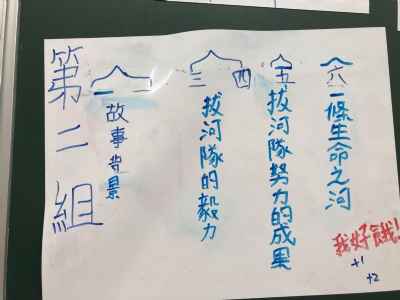 第二組
一 二
故事背景
三 四
拔河隊的毅力
五
拔河隊努力的成果
六
一條生命之河
我好餓!
+1
+2